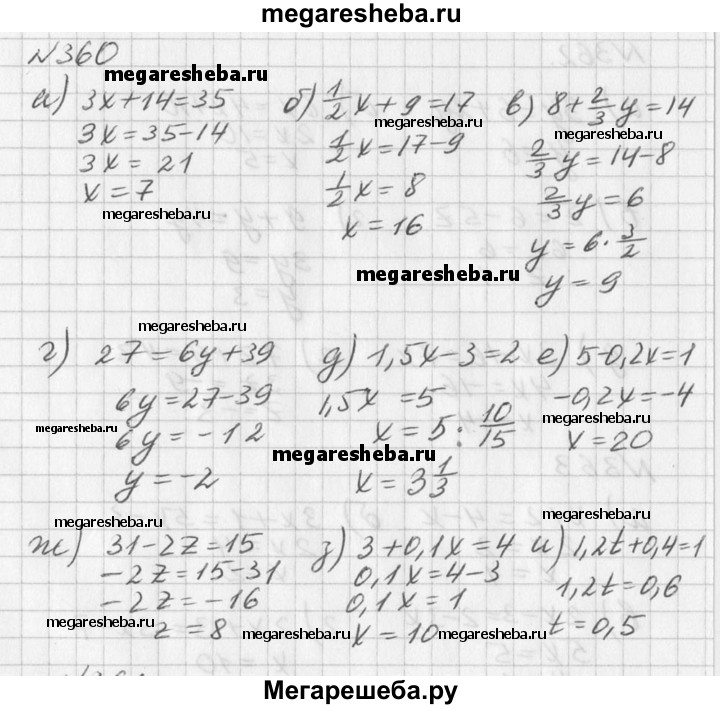 megaresheba.ru
№360
а) 3x+14=35
3x=35-14
3x= 21
x=7
б) 1/2 x+9=17
1/2 x=17-9
1/2 x=8
x=16
в) 8+2/3 y=14
2/3 y=14-8
2/3 y=6
y=6·3/2
y=9
г) 27=6y+39
6y=27-39
6y=-12
y=-2
д) 1,5x-3=2
1,5x =5
x=5:10/15
x=3 1/3
е) 5-0,2x=1
-0,2x=-4
x=20
ж) 31-2z=15
-2z=15-31
-2z=-16
z=8
з) 3+0,1x=4
0,1x=4-3
0,1x=1
x=10
и) 1,2t+0,4=1
1,2t=0,6
t=0,5
megaresheba.ru
megaresheba.ru
megaresheba.ru
megaresheba.ru
megaresheba.ru
megaresheba.ru
megaresheba.ru
megaresheba.ru
megaresheba.ru
megaresheba.ru
megaresheba.ru
megaresheba.ru
megaresheba.ru
megaresheba.ru
Мегарешеба.ру